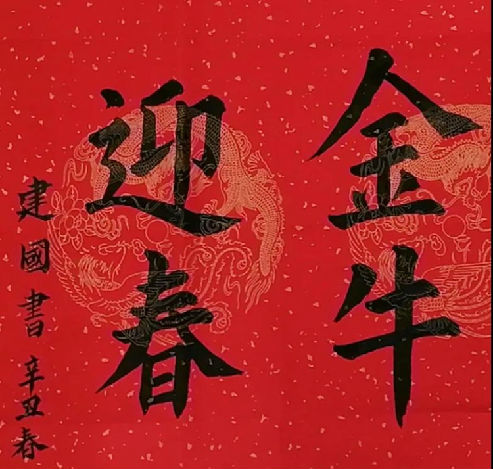 金牛
迎春
辛丑春
建國書